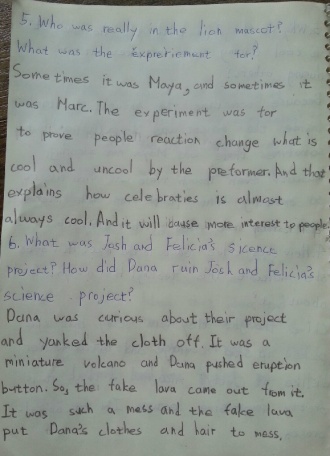 5. Who was really in the lion mascot?
What was the expreriement for?
Sometimes it was Maya, and sometimes it
was Marc. The experiment was for
to prove people reaction change what is
cool and uncool by the preformer. And that
explains how celebraties is almost
always cool. And it will cause more interest to people.
6. What was Josh and Felicia's sicence
project? How did Dana ruin Josh and Felicia's
science project?
Dana was curious about their project
and yanked the cloth off. It was a
miniature volcano and Dana pushed eruption
button. So, the fake lava came out from it.
It was such a mess and the fake lava
put Dana's clothes and hair to mess.